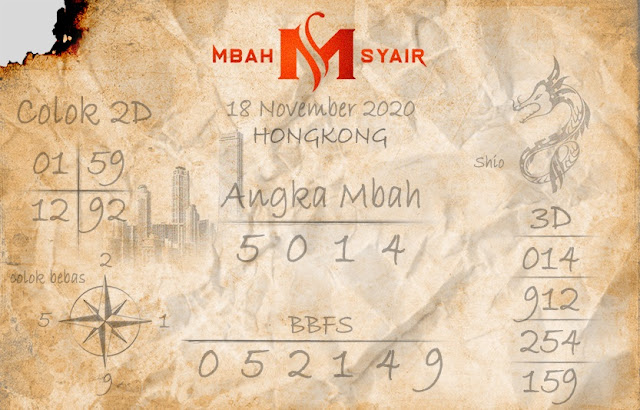 MBAH M SYAIR
Colok 2D
01 59
12 92
18 November 2020
HONGKONG
Shio
Angka Mbah
5 0 1 4
colok bebas
2
5 1
9
BBFS
0 5 2 1 4 9
3D
014
912
254
159